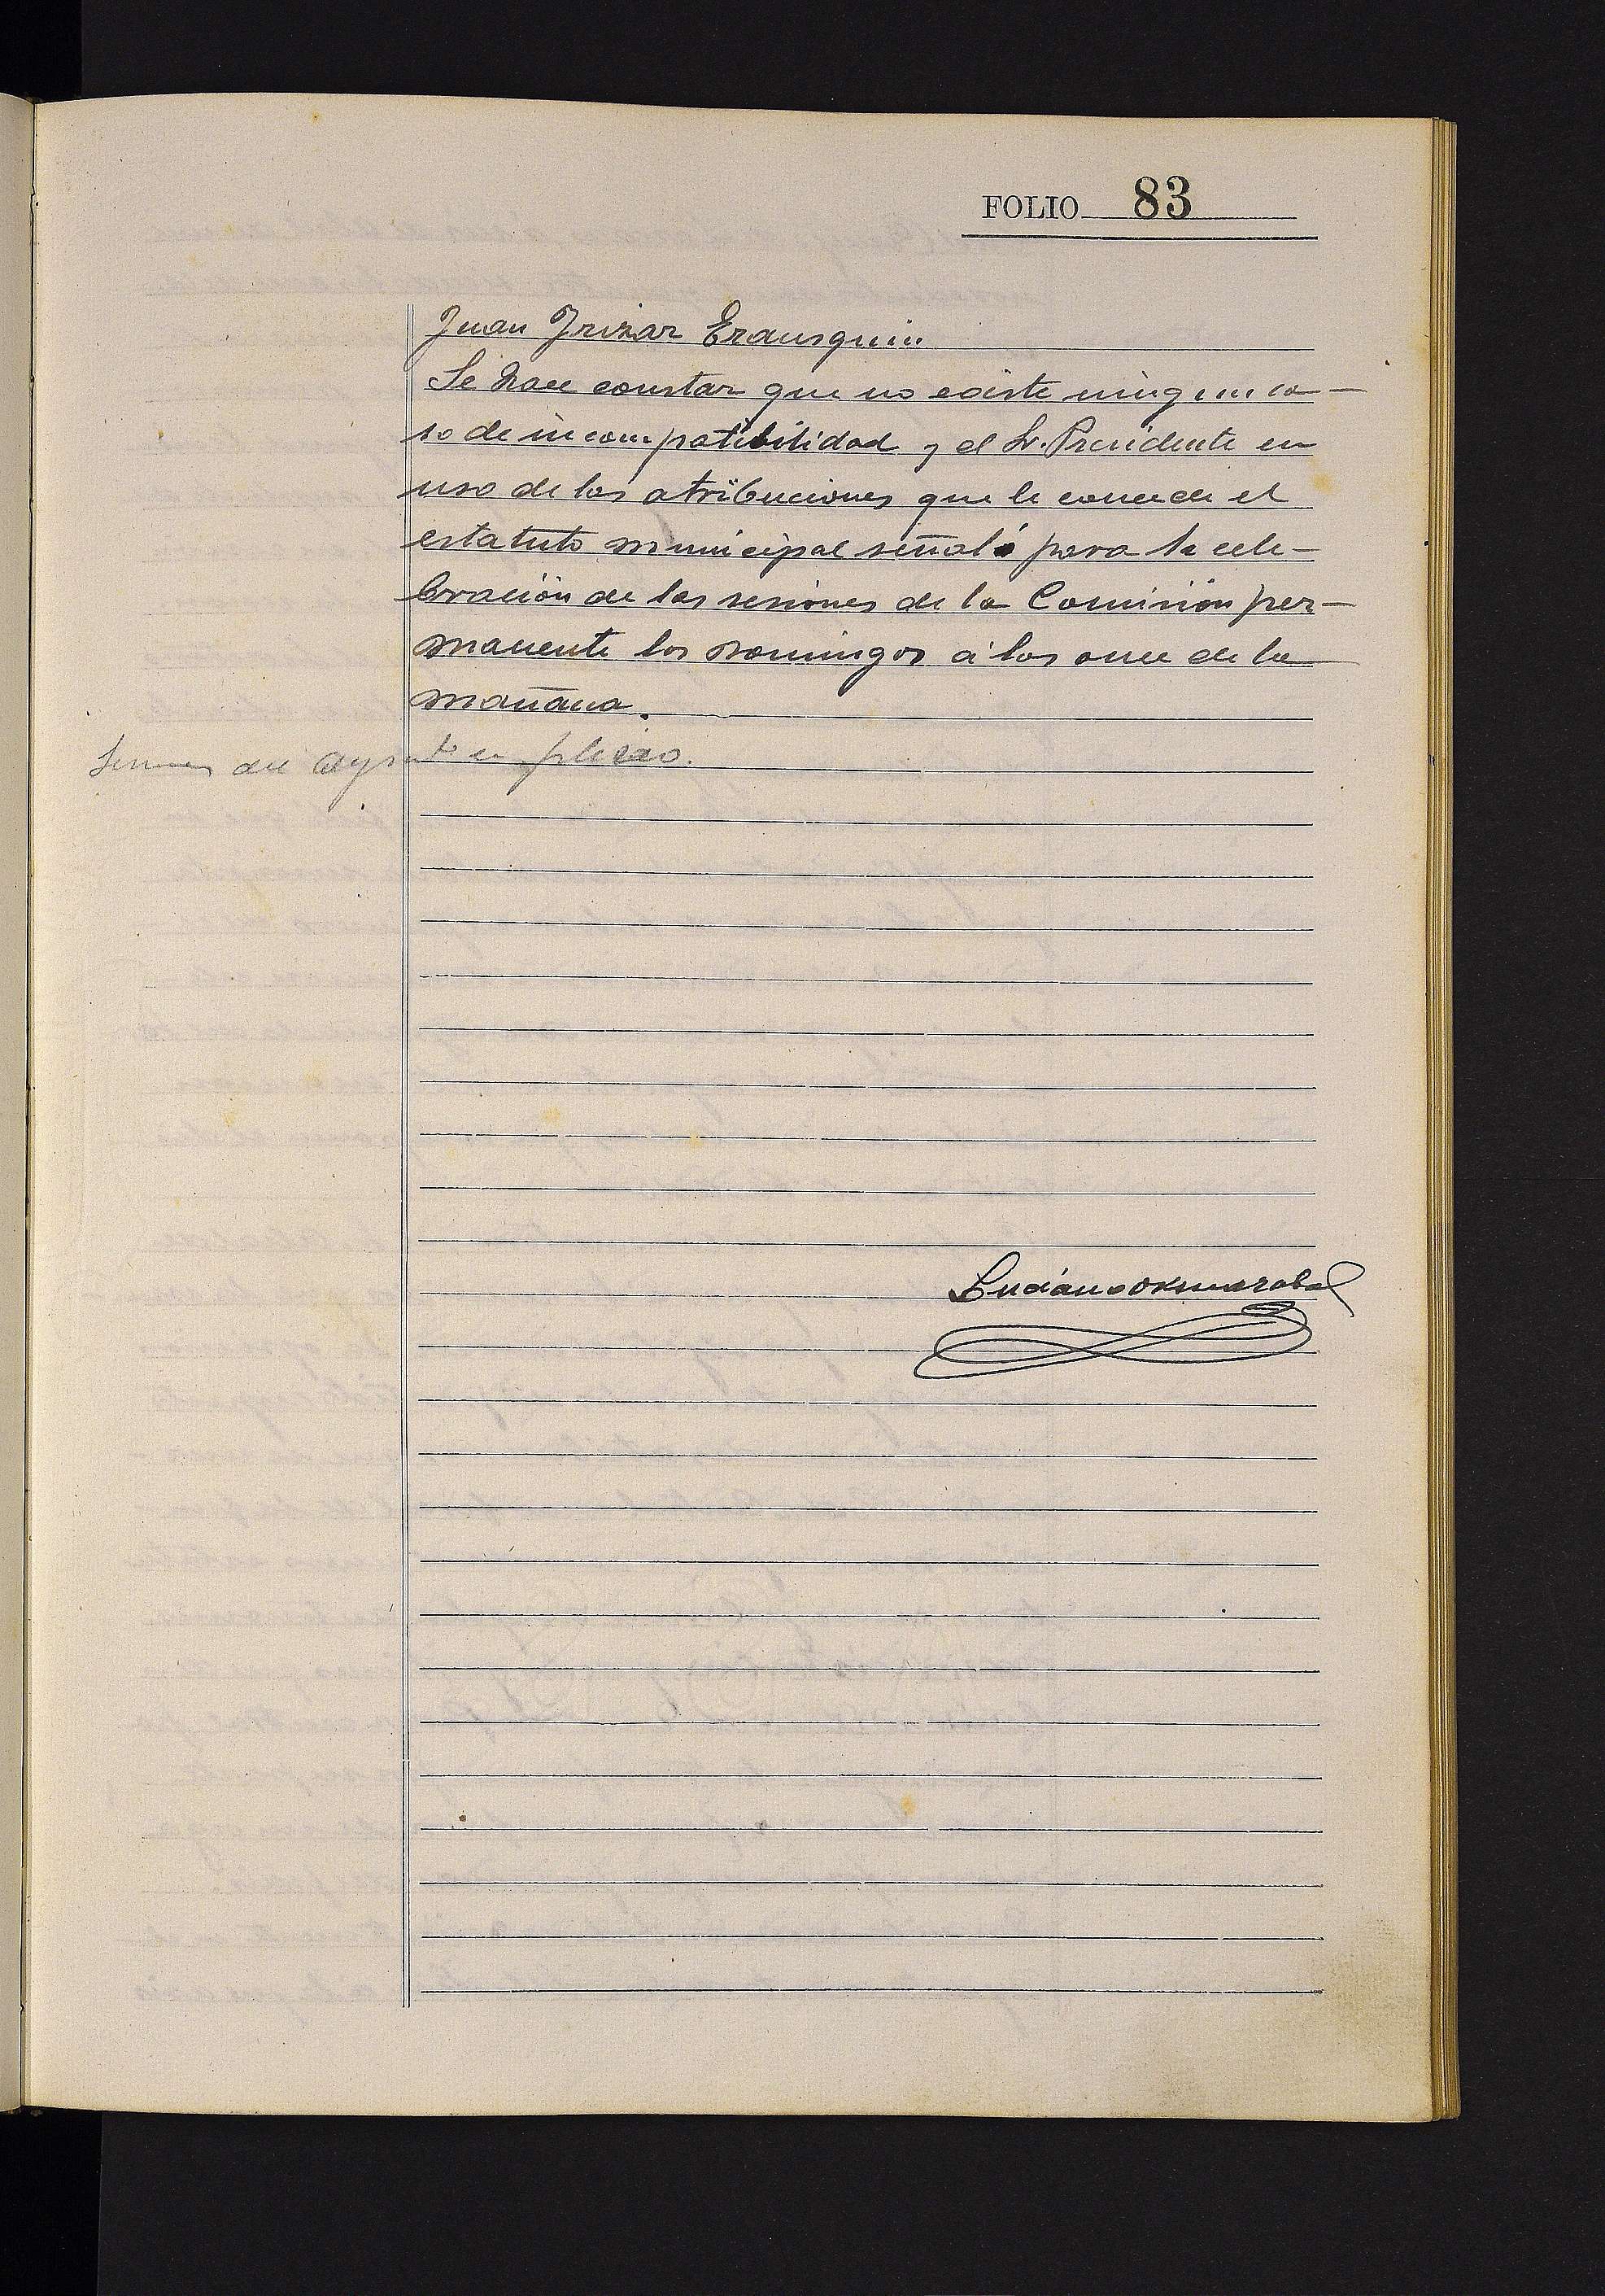 FOLIO 83
Juan Irizar Erausquin
Se hace constar que no existe ningun ca-
so de incompatibilidad y el Sr. Presidente en
uso de las atribuciones que le concede el
estatuto municipal señaló para la cele-
bración de las sesiones de la Comisión per-
manente los domingos á las once de la
mañana.
Sesiones del Ayunto en pleno.
Luciano